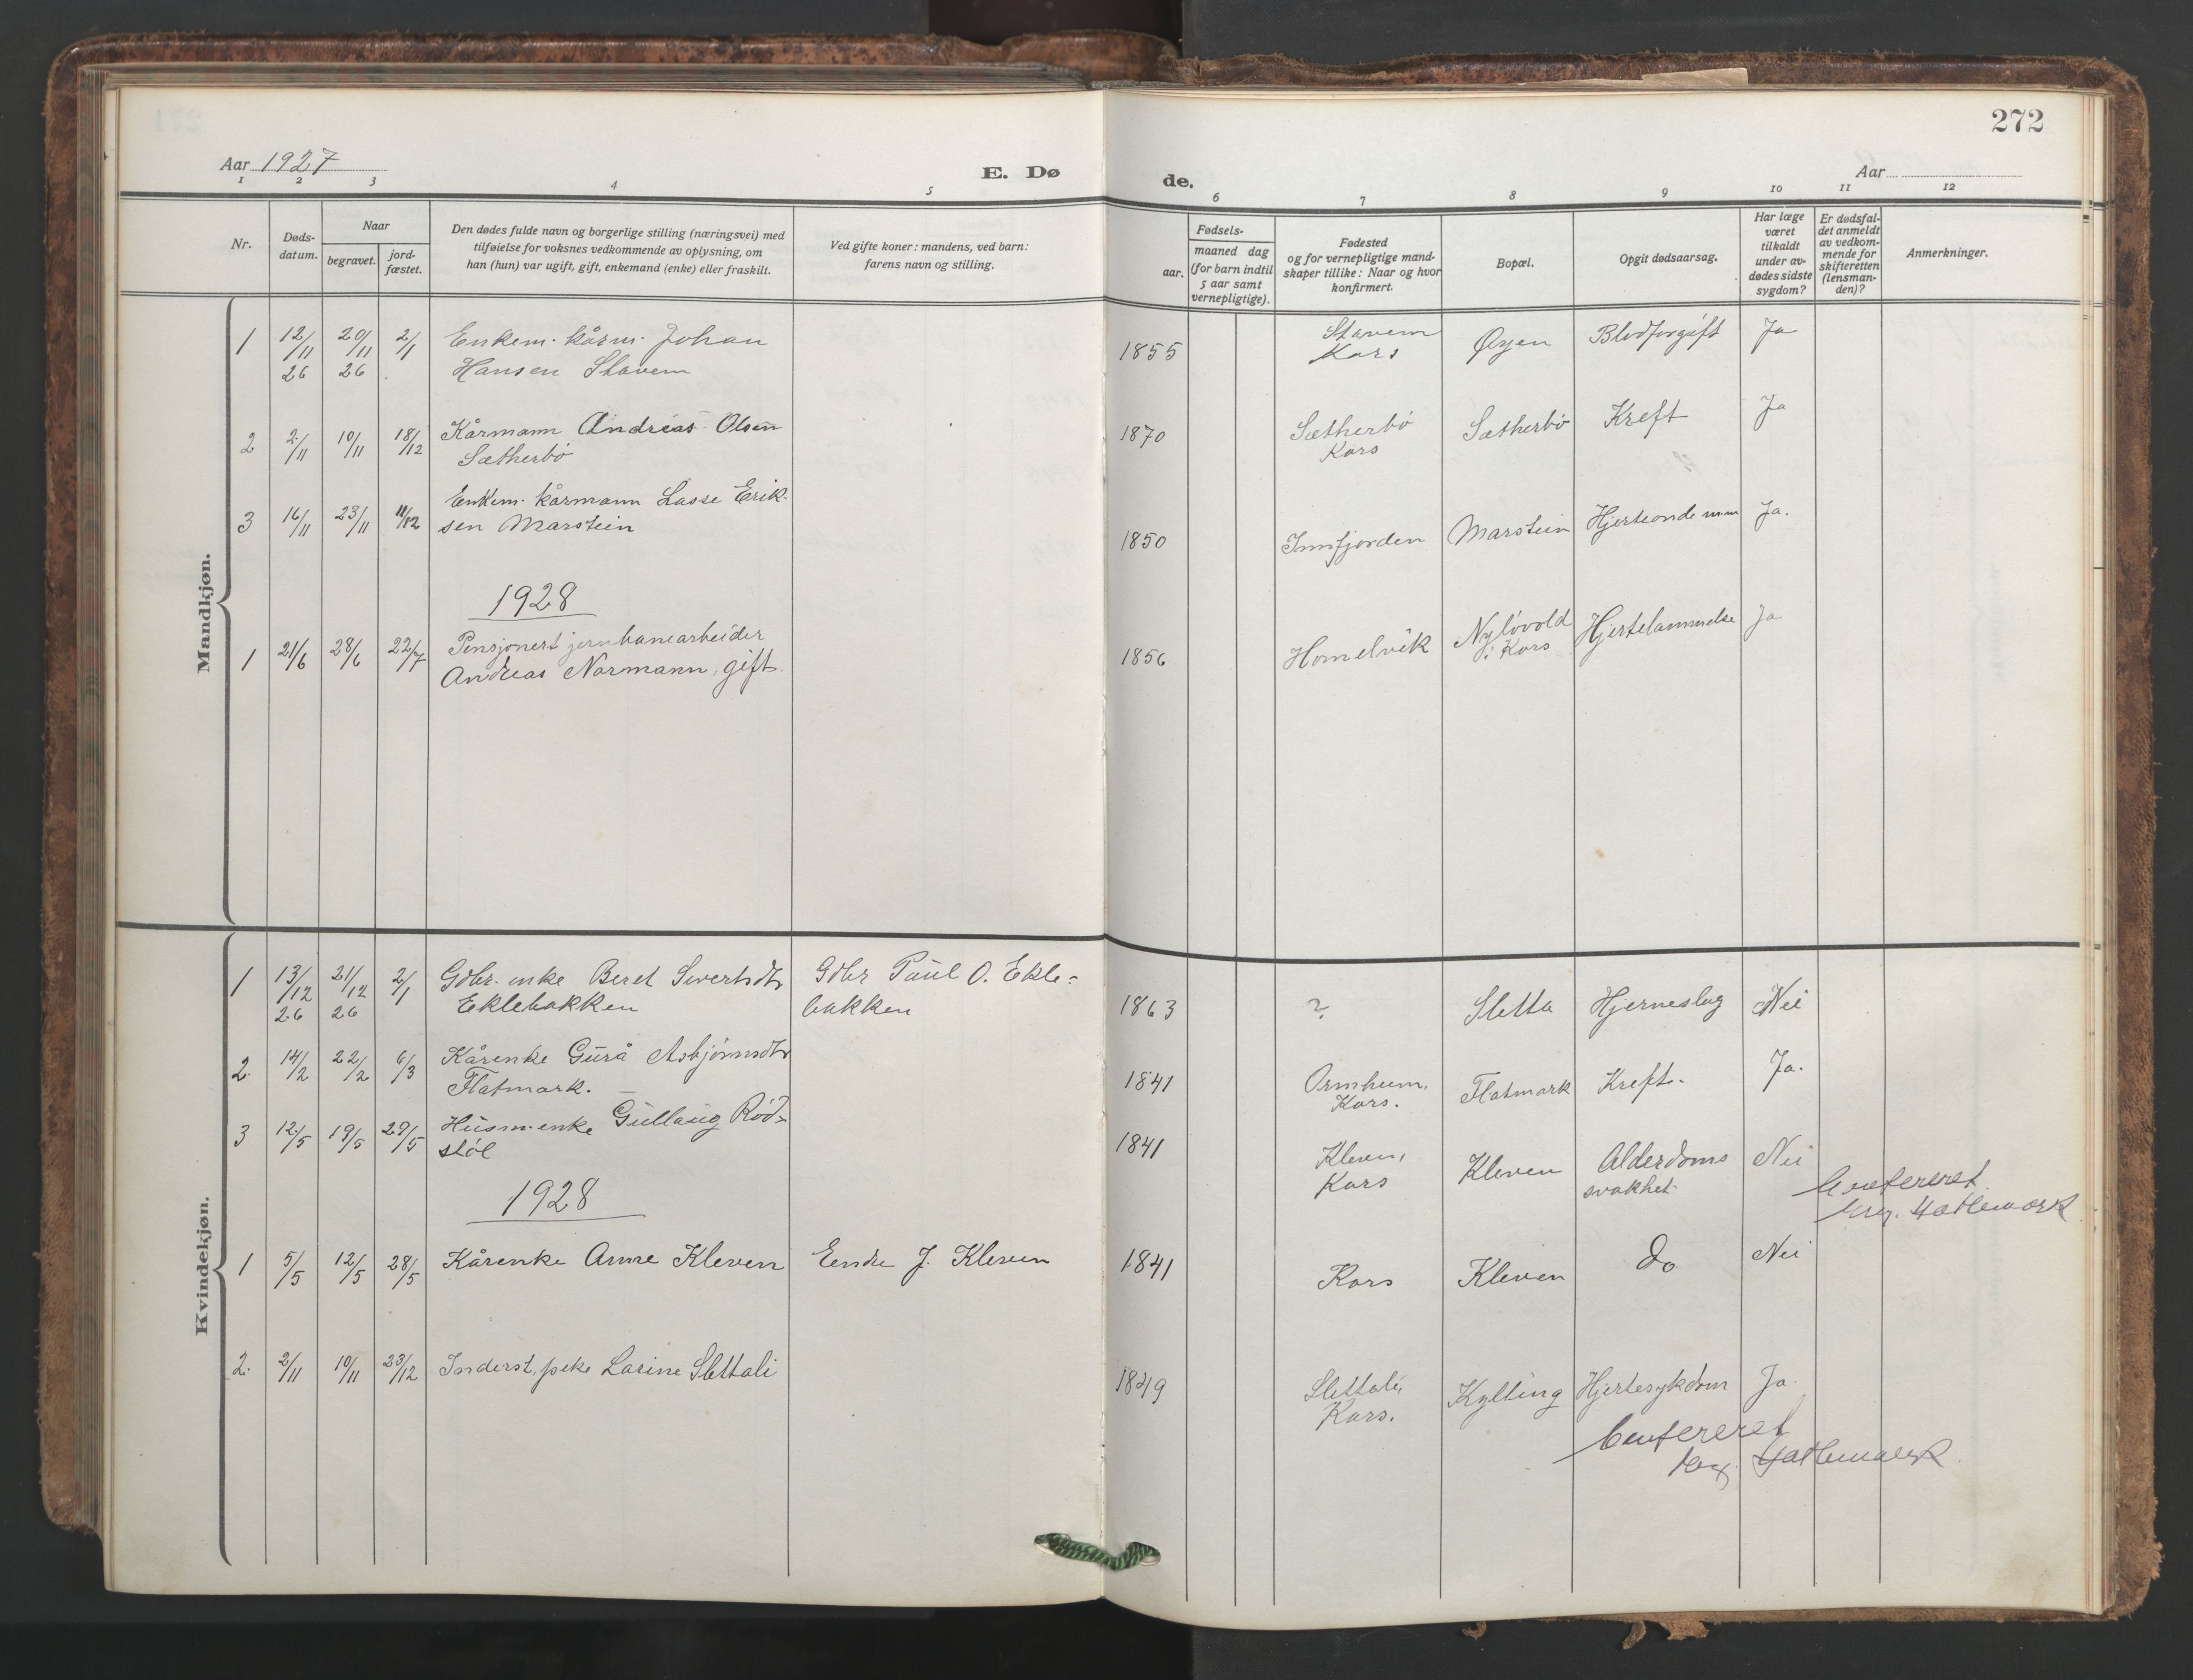 272
Aar 1927
E. Dø
de.
Aar
1 2 3 4 5 6 7 8 9 10 11 12
Nr.
Døds-
datum.
Naar
begravet.
jord-
fæstet.
Den dødes fulde navn og borgerlige stilling (næringsvei) med
tilføielse for voksnes vedkommende av oplysning, om
han (hun) var ugift, gift, enkemand (enke) eller fraskilt.
Ved gifte koner: mandens, ved barn:
farens navn og stilling.
Fødsels-
aar.
maaned dag
(for barn indtil
5 aar samt
vernepligtige).
Fødested
og for vernepligtige mand-
skaper tillike: Naar og hvor
konfirmert.
Bopæl.
Opgit dødsaarsag.
Har læge
været
tilkaldt
under av-
dødes sidste
sygdom?
Er dødsfal-
det anmeldt
av vedkom-
mende for
skifteretten
(lensman-
den)?
Anmerkninger.
Mandkjøn.
1 12/11 26 20/11 26 2/1 Enkem. kårm. Johan
Hansen Stavem
1855 Stavem
Kors
Øyen Blodforgift Ja
2 2/11 10/11 18/12 Kårmann Andreas Olsen
Sætherbø
1870 Sætherbø
Kors
Sætherbø Kreft Ja
3 16/11 23/11 11/12 Enkem. kårmann Lasse Erik-
sen Marstein
1850 Innfjorden Marstein Hjerteonde m.m Ja.
1928
1 21/6 28/6 22/7 Pensjonert jernbanearbeider
Andreas Normann, gift.
1856 Homelvik Nyløvold
i Kors
Hjertelammelse Ja
Kvindekjøn.
1 13/12 26 21/12 26 2/1 Gdbr. enke Beret Sivertsdtr
Eklebakken
Gdbr Paul O. Ekle-
bakken
1863 ? Sletta Hjerneslag Nei
2. 14/2 22/2 6/3 Kårenke Gurå Asbjørnsdtr
Flatmark.
1841 Ormheim,
Kors.
Flatmark Kreft. Ja.
3 12/5 19/5 29/5 Husm. enke Gullaug Rød-
støl
1841 Kleven,
Kors
Kleven Alderdoms
svakhet
Nei
Hattemark
1928
1 5/5 12/5 28/5 Kårenke Anne Kleven Endre J. Kleven
1841 Kors Kleven do Nei
2. 2/11 10/11 23/12 Inderst, pike Larine Slettali
1849 Slettali,
Kors.
Kylling Hjertesykdom Ja.
Hattemark